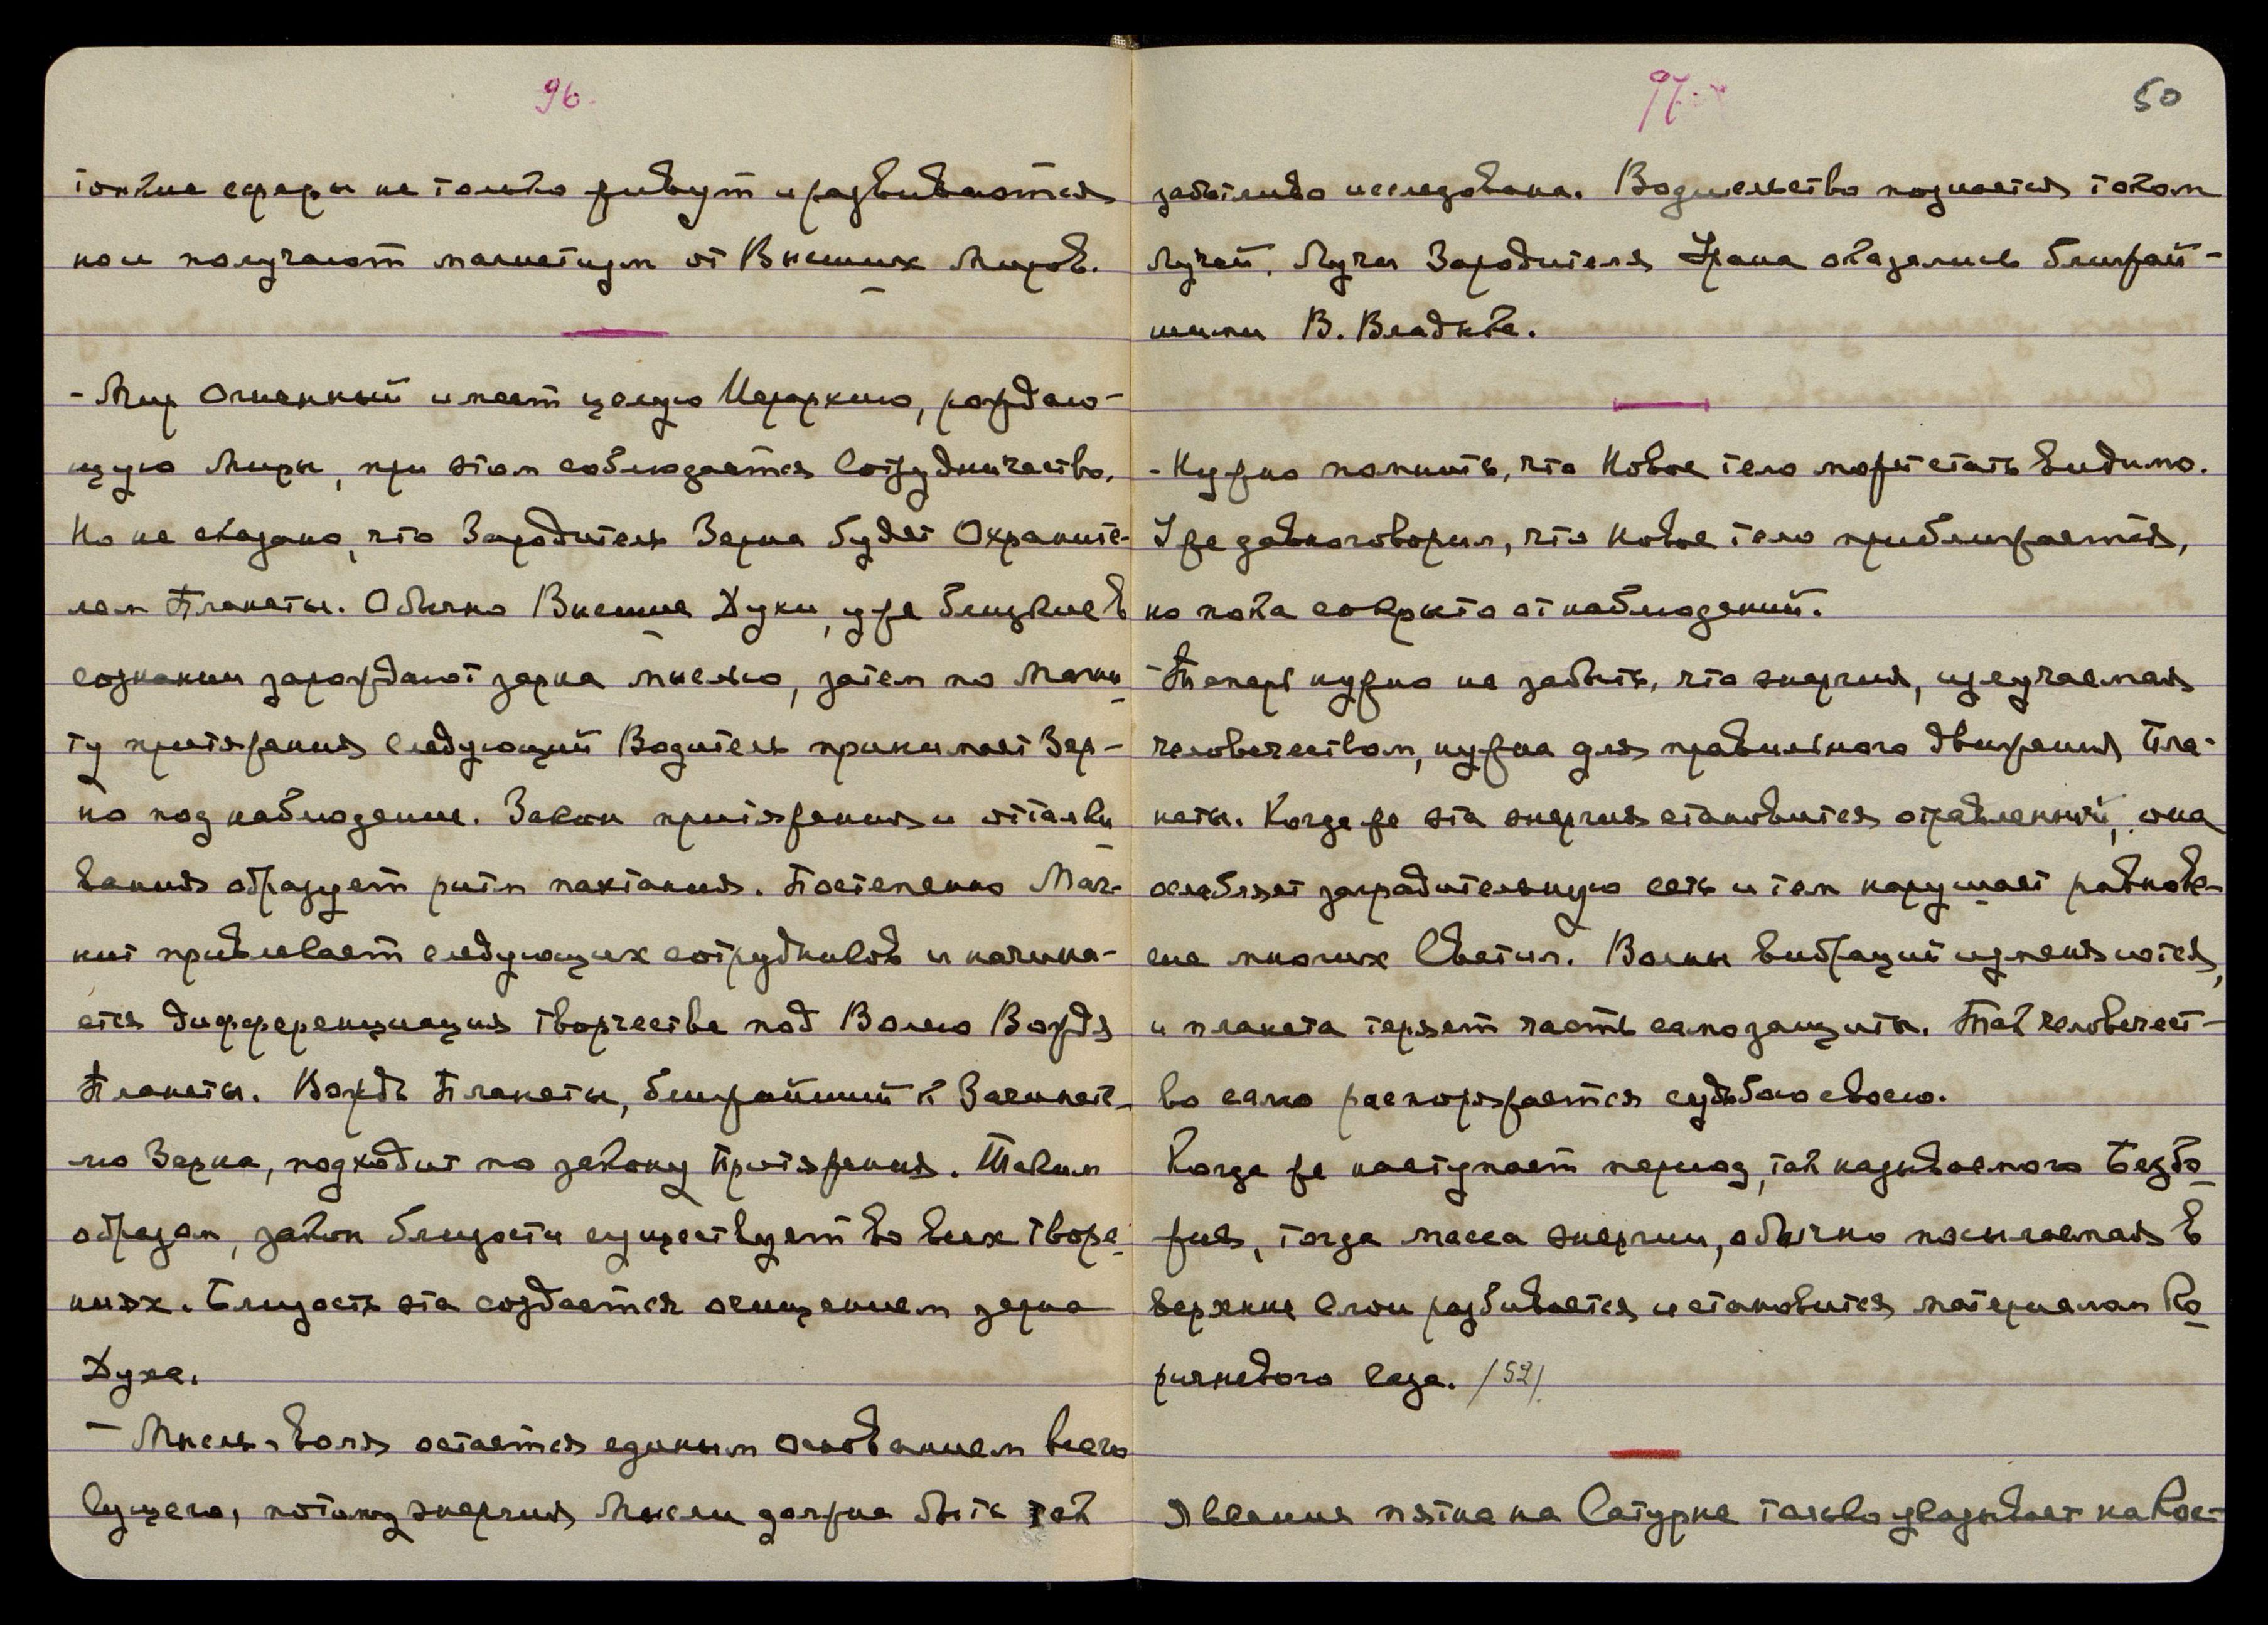 96.
тонкие сферы не только живут и развиваются
но и получают магнетизм от Высших Миров.
- Мир Огненный имеет целую Иерархию, рождаю-
щую Миры, при этом соблюдается Сотрудничество.
Но не сказано, что Зародитель Зерна будет Охраните-
лем Планеты. Обычно Высшие Духи, уже близкие в
сознании зарождают зерна мыслью, затем по Магни
ту притяжения следующий Водитель принимает Зер-
но под наблюдение. Закон притяжения и отталки
вания образует ритм пахтания. Постепенно Маг-
нит привлекает следующих сотрудников и начина-
ется дифференциация творчества под Волею Вождя
Планеты. Вождь Планеты, ближайший к Зачинате-
лю Зерна, подходит по закону Притяжения. Таким
образом, закон близости существует во всех творе
ниях. Близость эта создается очищением зерна
Духа.
- Мысль-воля остается единым основанием всего
Сущего, потому энергия Мысли должна быть так
97.
50
заботливо исследована. Водительство познается током
Лучей. Лучи Зародителя Урана оказались ближай-
шими В. Владыке.
- Нужно помнить, что Новое тело может стать видимо.
Уже давно говорил, что Новое тело приближается,
но пока сокрыто от наблюдений.
- Теперь нужно не забыть, что энергия, излучаемая
человечеством, нужна для правильного движения Пла-
неты. Когда же эта энергия становится отравленной, она
ослабляет заградительную сеть и тем нарушает равнове-
сие многих Светил. Волны вибраций изменяются,
и планета теряет часть самозащиты. Так человечест-
во само распоряжается судьбою своею.
Когда же наступает период, так называемого Безбо
жия, тогда масса энергии, обычно посылаемая в
верхние слои разбивается и становится материалом Ко
ричневого Газа. /52/.
Явления пятна на Сатурне только указывает на Кос-